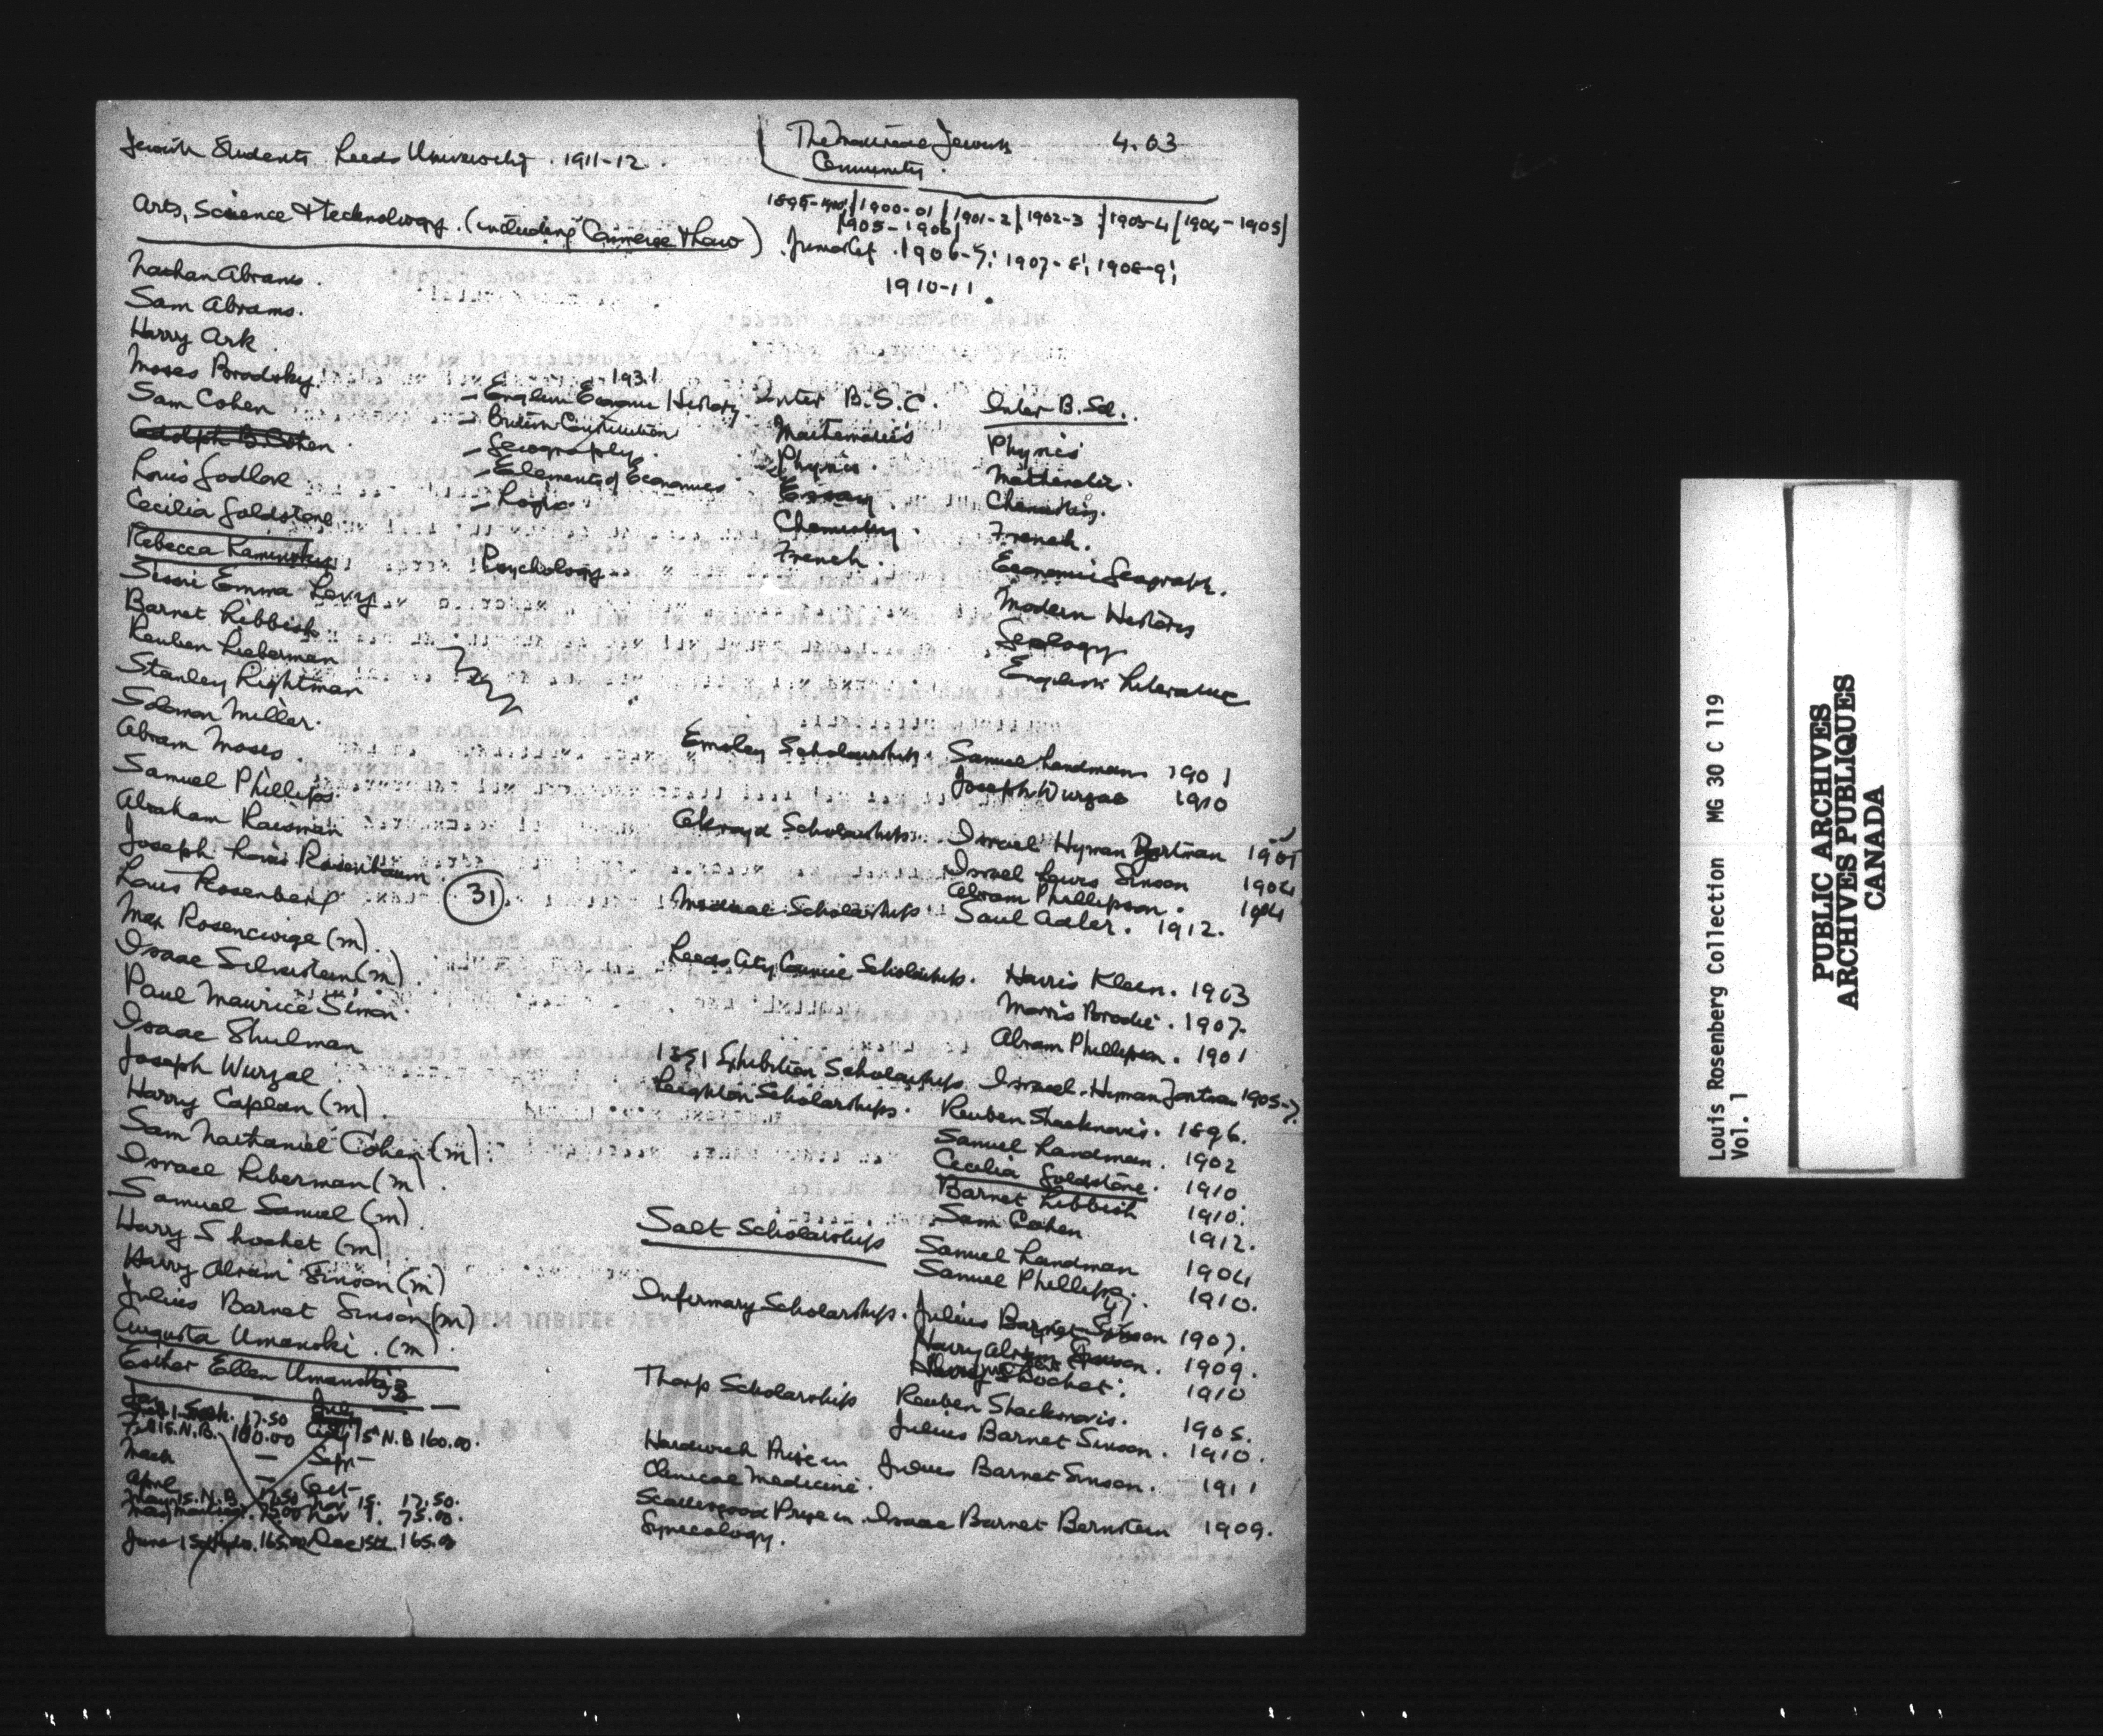 Jewish Students Leeds University. 1911-12.
The Montreal Jewish 4.03
Community.
Arts, Science & Technology. (including Commerce & Law)
1900-01 | 1901-2 | 1902-3 | 1903-4 | 1904-1905
1905-1906
1906-7; 1907-8; 1908-9;
1910-11.
Nathan Abrams.
Sam Abrams.
Harry Ark.
Moses Brodsky.
Sam Cohen
Adolph B. Cohen
Louis Godlove
Cecilia Goldstone
Rebecca Kaminsky
Sissie Emma Levy
Barnet Libbish
Reuben Lieberman
Stanley Rightman
Solomon Miller.
Abram Moses.
Samuel Phillips
Abraham Raisman
Joseph Louis Rosenbaum
Louis Rosenberg
31
Max Rosencwige (m).
Isaac Silverstein (m).
Paul Maurice Simon.
Isaac Shulman
Joseph Wurzal
Harry Caplan (m).
Sam Nathaniel Cohen (m).
Israel Liberman (m).
Samuel Samuel (m).
Harry Shochet (m).
Harry Abram Sinson (m)
Julius Barnet Sinson (m).
Augusta Umanski. (m).
Esther Ellen Umanski
1931
- English Economic History
- British Constitution
- Geography.
- Elements of Economics
- Logic.
Psychology
Inter B.S.C.
Mathematics
Physics.
Essay
Chemistry.
French.
Inter B.Sc.
Physics
Mathematics.
Chemistry.
French.
Economic Geography.
Modern History
Geology
English Literature
Emsley Scholarships. Samuel Landman 1901
Joseph Wurzal 1910
Akroyd Scholarships. Israel Hyman 1901
Israel Lewis Sinson 1904
Abram Phillipson. 1904
Medical Scholarships Saul Adler. 1912.
Leeds City Council Scholarships. Harris Klein. 1903
Morris Brodie. 1907.
Abram Phillipson. 1901
1851 Exhibition Scholarships Israel Hyman 1905-7.
Leighton Scholarships. Reuben Shacknovis. 1896.
Samuel Landman. 1902
Cecilia Goldstone. 1910
Barnet Libbish 1910.
Sam Cohen 1912.
Salt Scholarships Samuel Landman 1904
Samuel Phillips. 1910.
Infirmary Scholarships. Julius Barnet Sinson 1907.
Harry Abram Sinson. 1909.
Harry Shochet. 1910
Thorp Scholarships Reuben Shacknovis. 1905.
Julius Barnet Sinson. 1910.
Hardwick Prize in Julius Barnet Sinson. 1911
Clinical Medicine.
Scattergood Prize in Isaac Barnet Bernstein 1909.
Gynecology.
17.50 July
Feb 15. N.B. 160.00 15 N.B 160.00.
March — Sept —
April — Oct —
May 15. N.B. 17.50 Nov 15. 17.50.
75.00 Nov 75.00.
June 165.00 Dec 165.00
Louis Rosenberg Collection MG 30 C 119
Vol. 1
PUBLIC ARCHIVES
ARCHIVES PUBLIQUES
CANADA